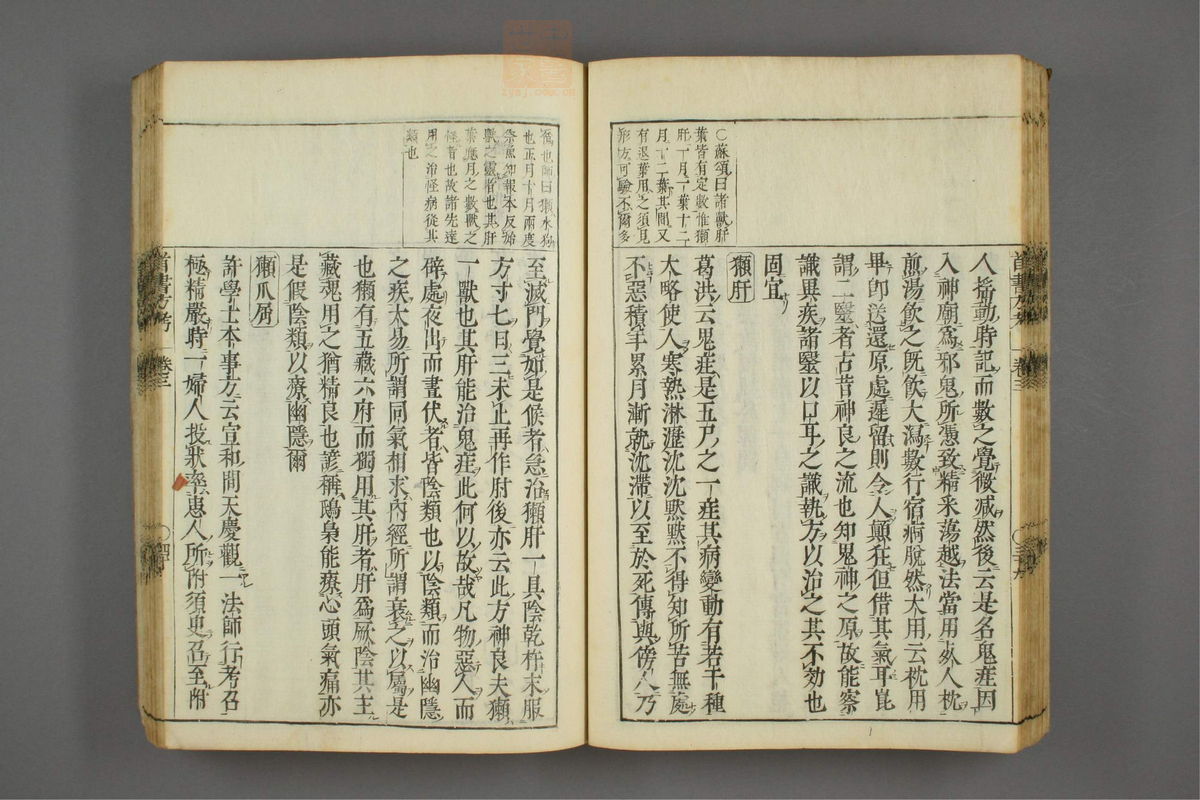 ○蘇頌曰諸獸肝
葉皆有定數惟獺
肝一月一葉十二
月十二葉其間又
有退葉用之須見
形方可驗不爾多
人搖動時記而數之覺微減然後云是名鬼疰因
入神廟為邪鬼所憑致精采蕩越法當用死人枕
煎湯飲之既飲大瀉數行宿痾脫然大用云枕用
畢卽送還原處遲留則令人顚狂但借其氣耳崑
謂二醫者古昔神良之流也知鬼神之原故能察
識異疾諸醫以口耳之識執方以治之其不効也
固宜
獺肝
葛洪云鬼疰是五尸之一疰其病變動有若干種
大略使人寒熱淋瀝沈沈默默不得知所苦無處
不惡積年累月漸就沈滯以至於死傳與傍人乃
僞也師曰獺水狗
也正月十月兩度
祭魚知報本反始
獸之靈者也其肝
葉應月之數獸之
怪者也故諸先達
用之治怪病從其
類也
至滅門覺如是候者急治獺肝一具陰乾杵末服
方寸七日三未止再作肘後亦云此方神良夫獺
一獸也其肝能治鬼疰此何以故哉凡物惡人而
僻處夜出而晝伏者皆陰類也以陰類而治幽隱
之疾大易所謂同氣相求內經所謂衰之以屬是
也獺有五藏六府而獨用其肝者肝為厥陰其主
藏魂用之猶精良也諺稱鴟梟能療心頭氣痛亦
是假陰類以療幽隱爾
獺爪屑
許學士本事方云宣和間天慶觀一法師行考召
極精嚴時一婦人投狀率患人所附須臾召至附
首書方考
卷三
首書方考
卷三